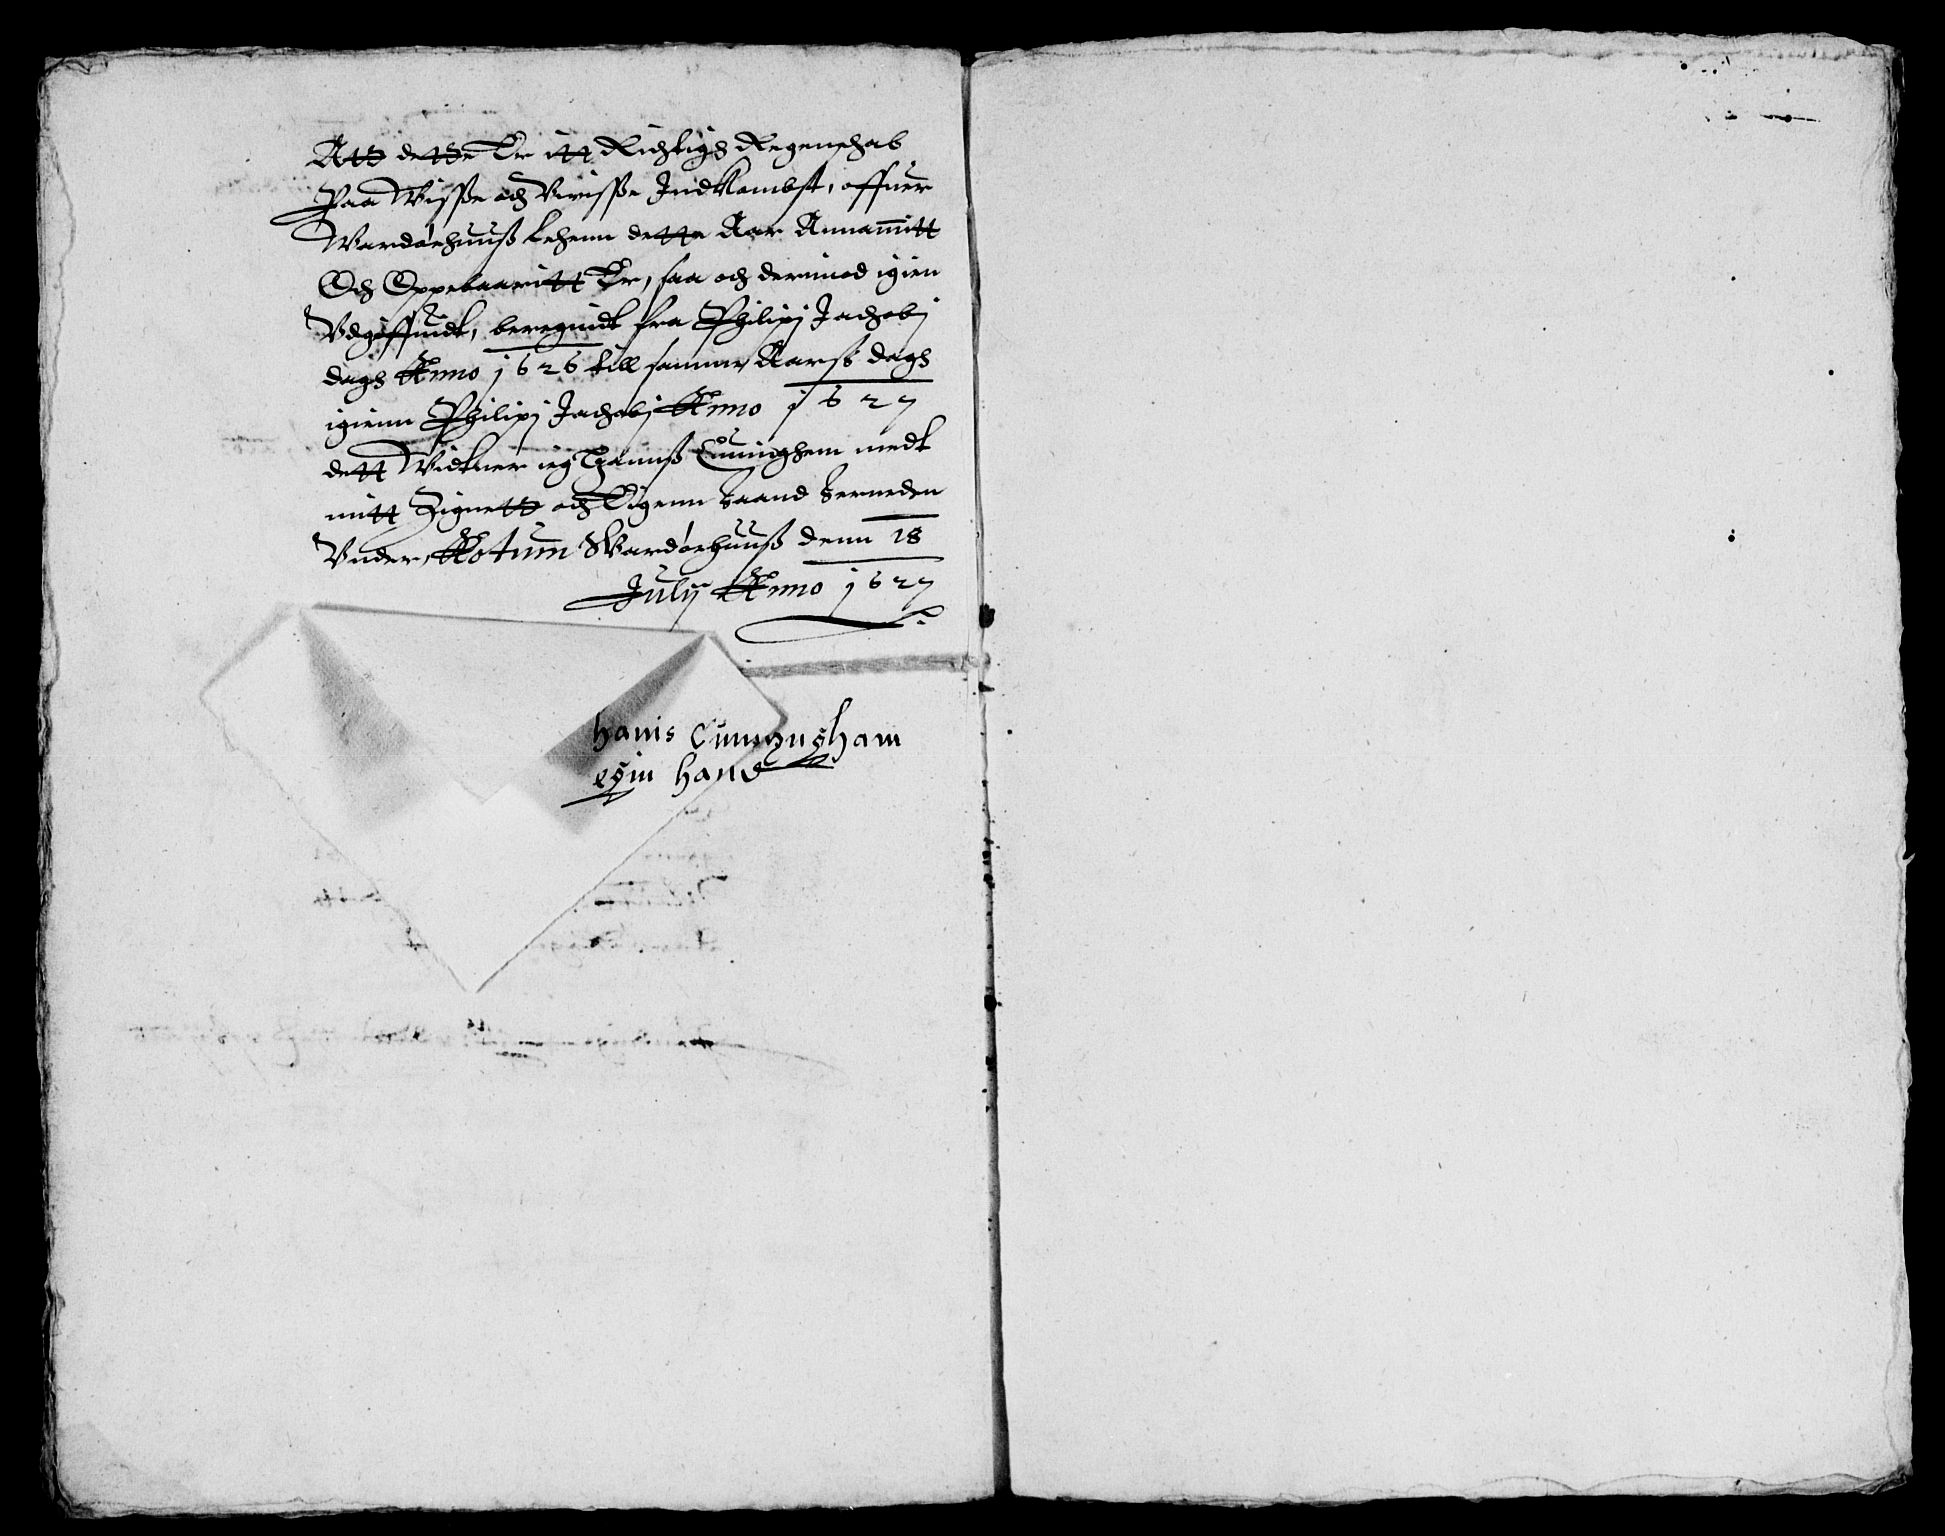 Att dette Er itt Richtigh Regenschab
Paa Wisse och Vwisse Indkombst, offuer
Wardøehuuss Lehenn dette Aar Annammitt
Och Oppebaaritt Er, saa och derimod igien
Vdgiffuidt, beregnidt fra Philipj Jachobj
dagh Anno 1626 till samme Aarss dagh
igienn Philipj Jachobj Anno 1627
dett Widtner ieg Hannss Cuninghem medt
mitt Zignett och Eigenn haand herneden
Vnder, Actum Wardøehuuss denn 18
Julij Anno 1627
hanis Cunnyngham
egin hand